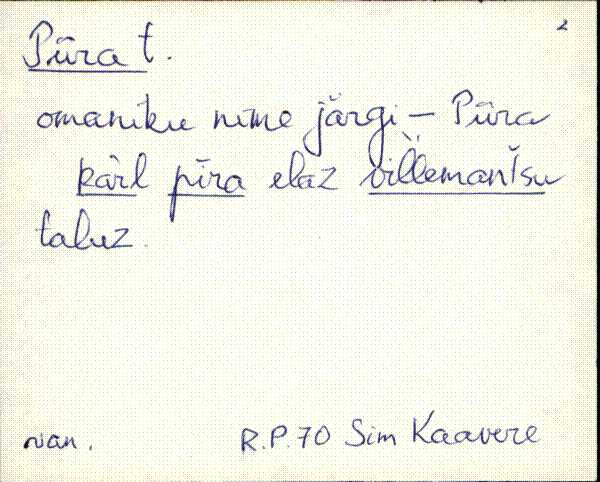 2
Pūra t.
omaniku nime järgi – Pūra
kàrl pīra elaz villemanťsu
taluz.
van. R.P.70 Sim Kaavere